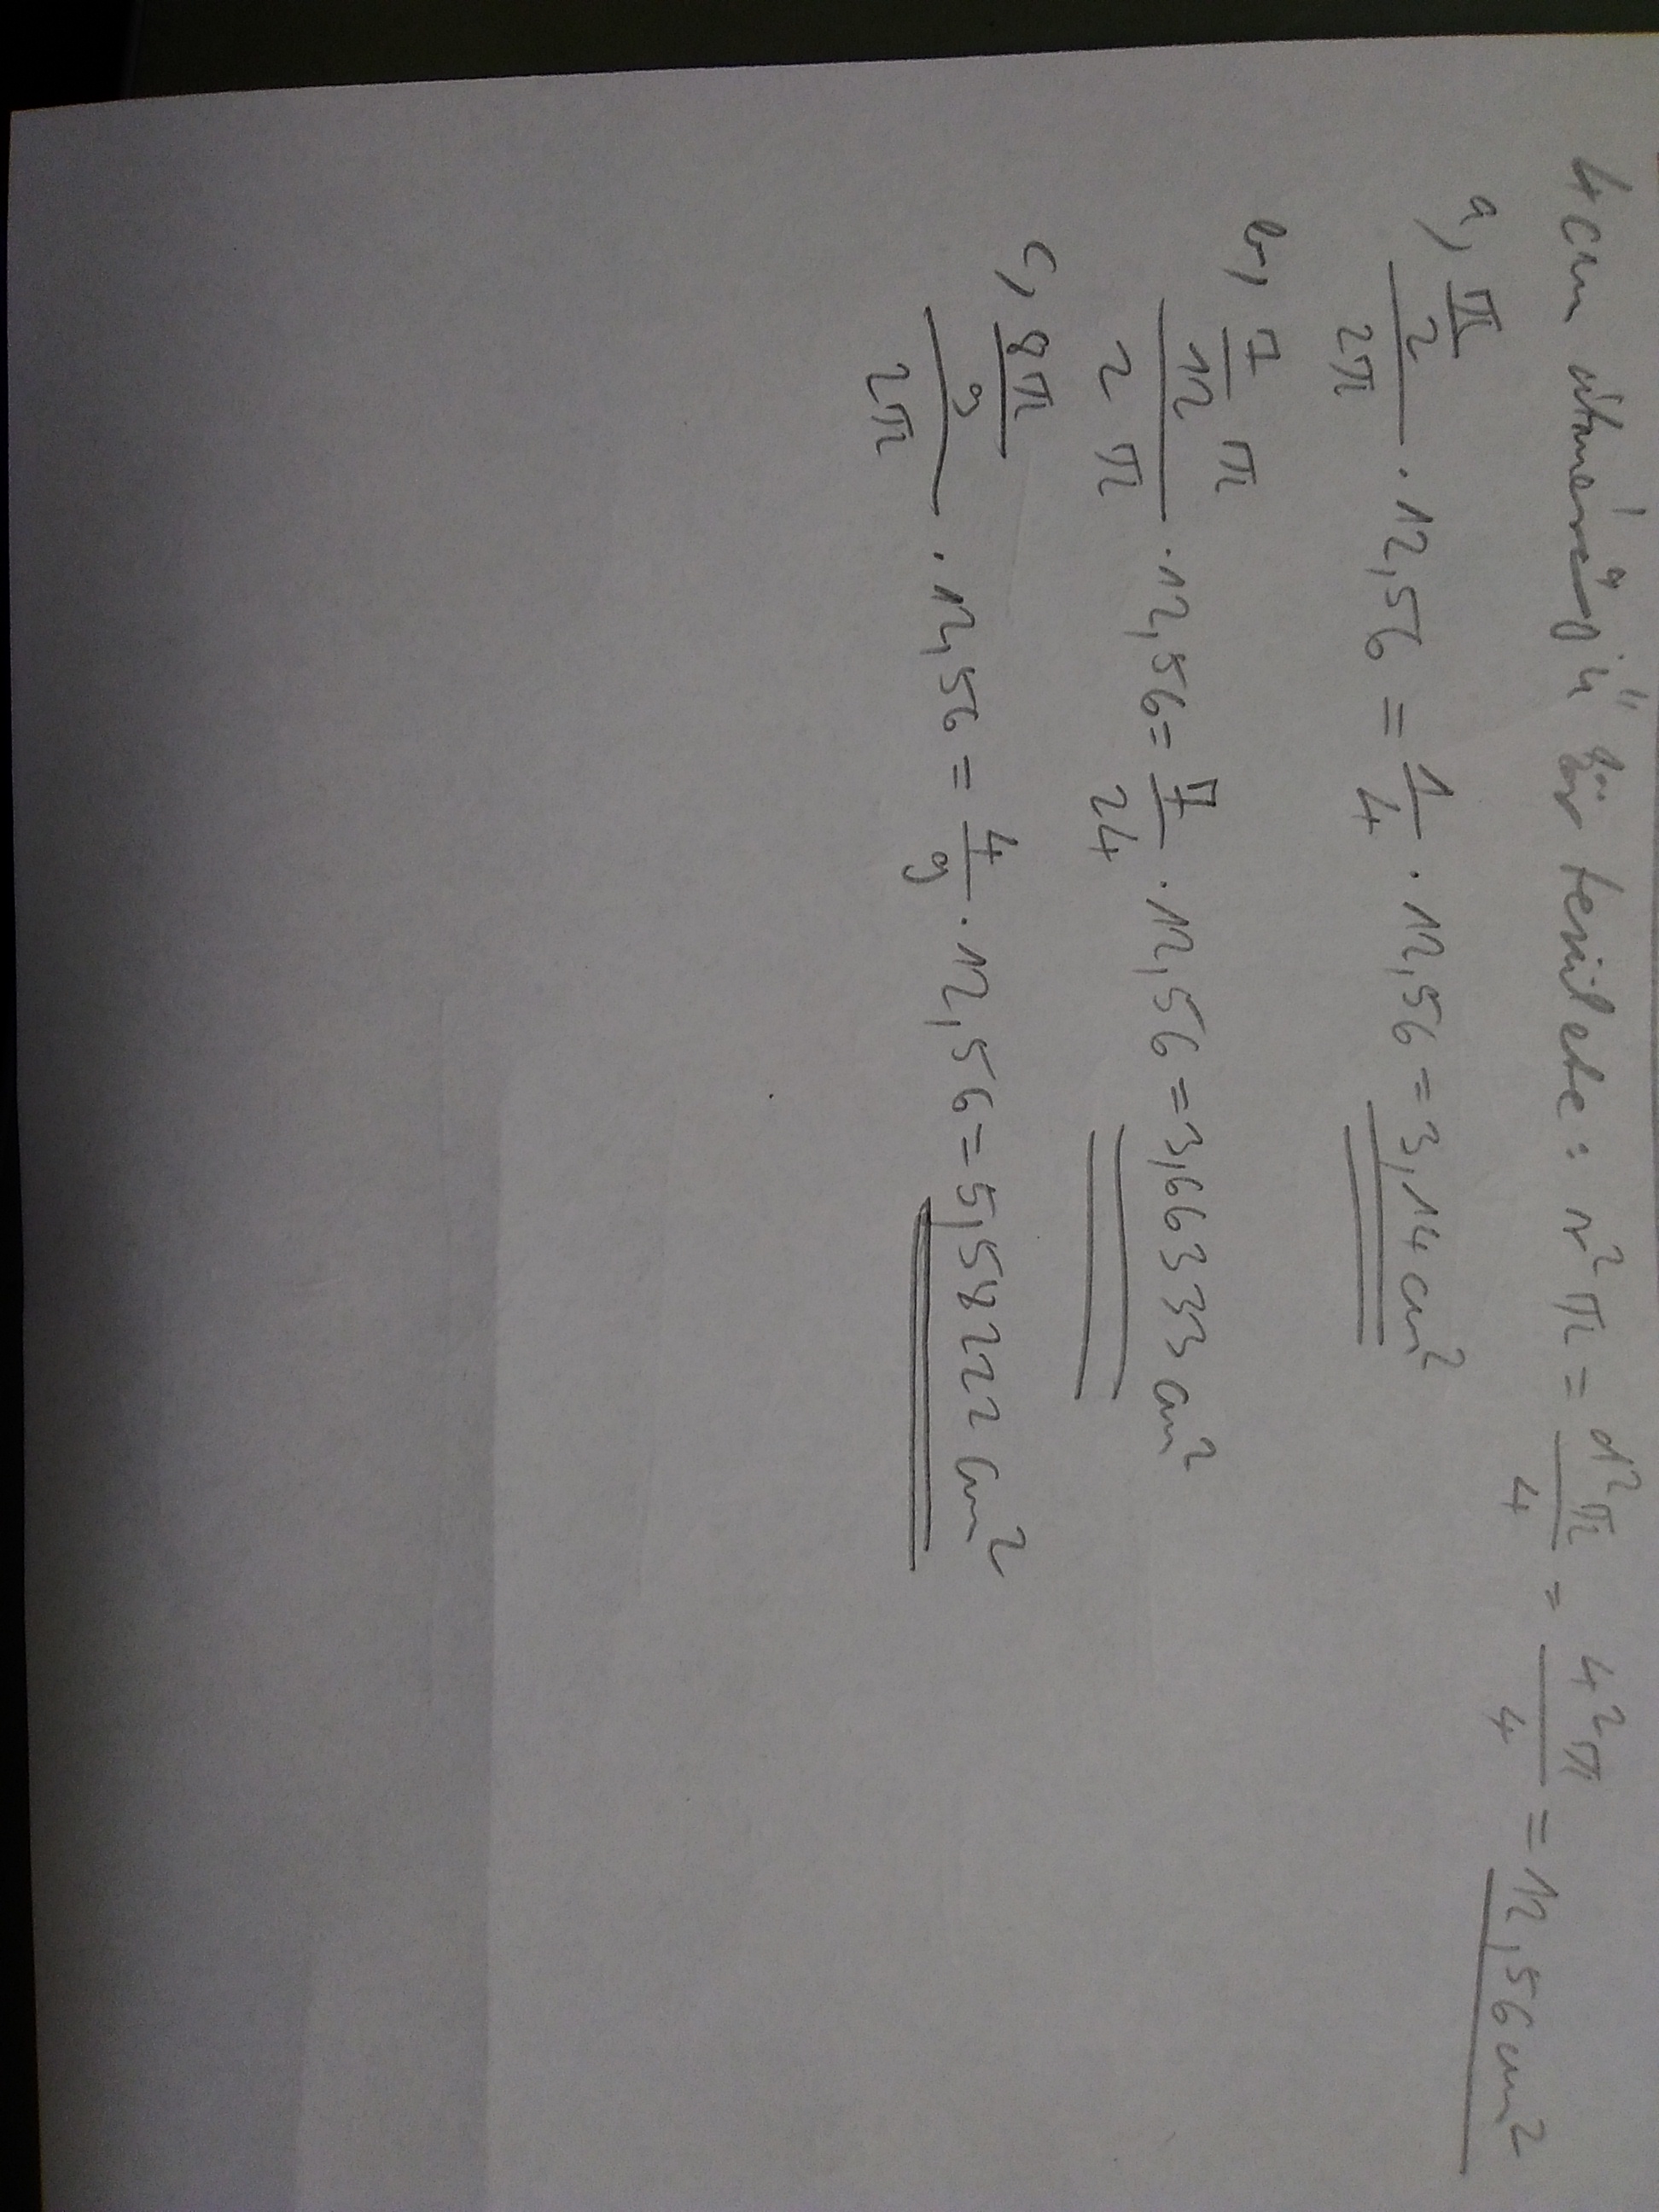 4 cm átmérőjű kör területe: r²π = d²π/4 = 4²π/4 = 12,56 cm²
a, (π/2)/(2π) · 12,56 = 1/4 · 12,56 = 3,14 cm²
b, (7/12 π)/(2π) · 12,56 = 7/24 · 12,56 = 3,66333 cm²
c, (8π/9)/(2π) · 12,56 = 4/9 · 12,56 = 5,58222 cm²